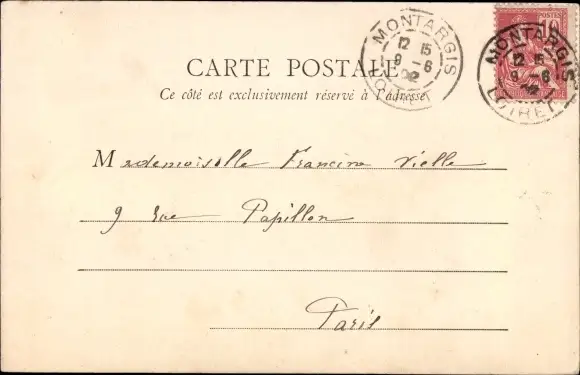 MONTARGIS
12 15
9 - 6
02
LOIRET
POSTES 10
MONTARGIS
12 15
9 - 6
02
LOIRET
CARTE POSTALE
Ce côté est exclusivement réservé à l'adresse
Mademoiselle Francine Vielle
9 rue Papillon
Paris